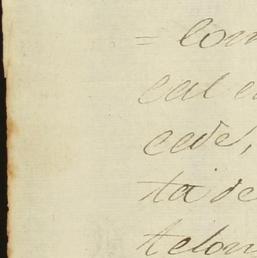 = con
cal e
cede,
ta de
telon